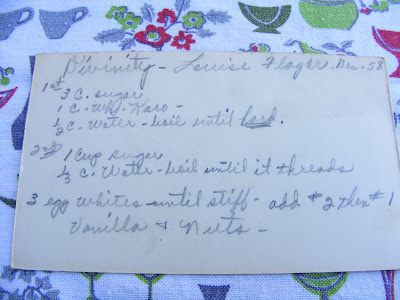 Divinity - Louise Flager. Dec. 53
1st
3 C. sugar
1 C. Wh. Karo -
1/2 C. Water - boil until hard.
2nd 1 Cup sugar
1/3 C. Water - boil until it threads
3 egg whites until stiff - add #2 then #1
Vanilla & Nuts -